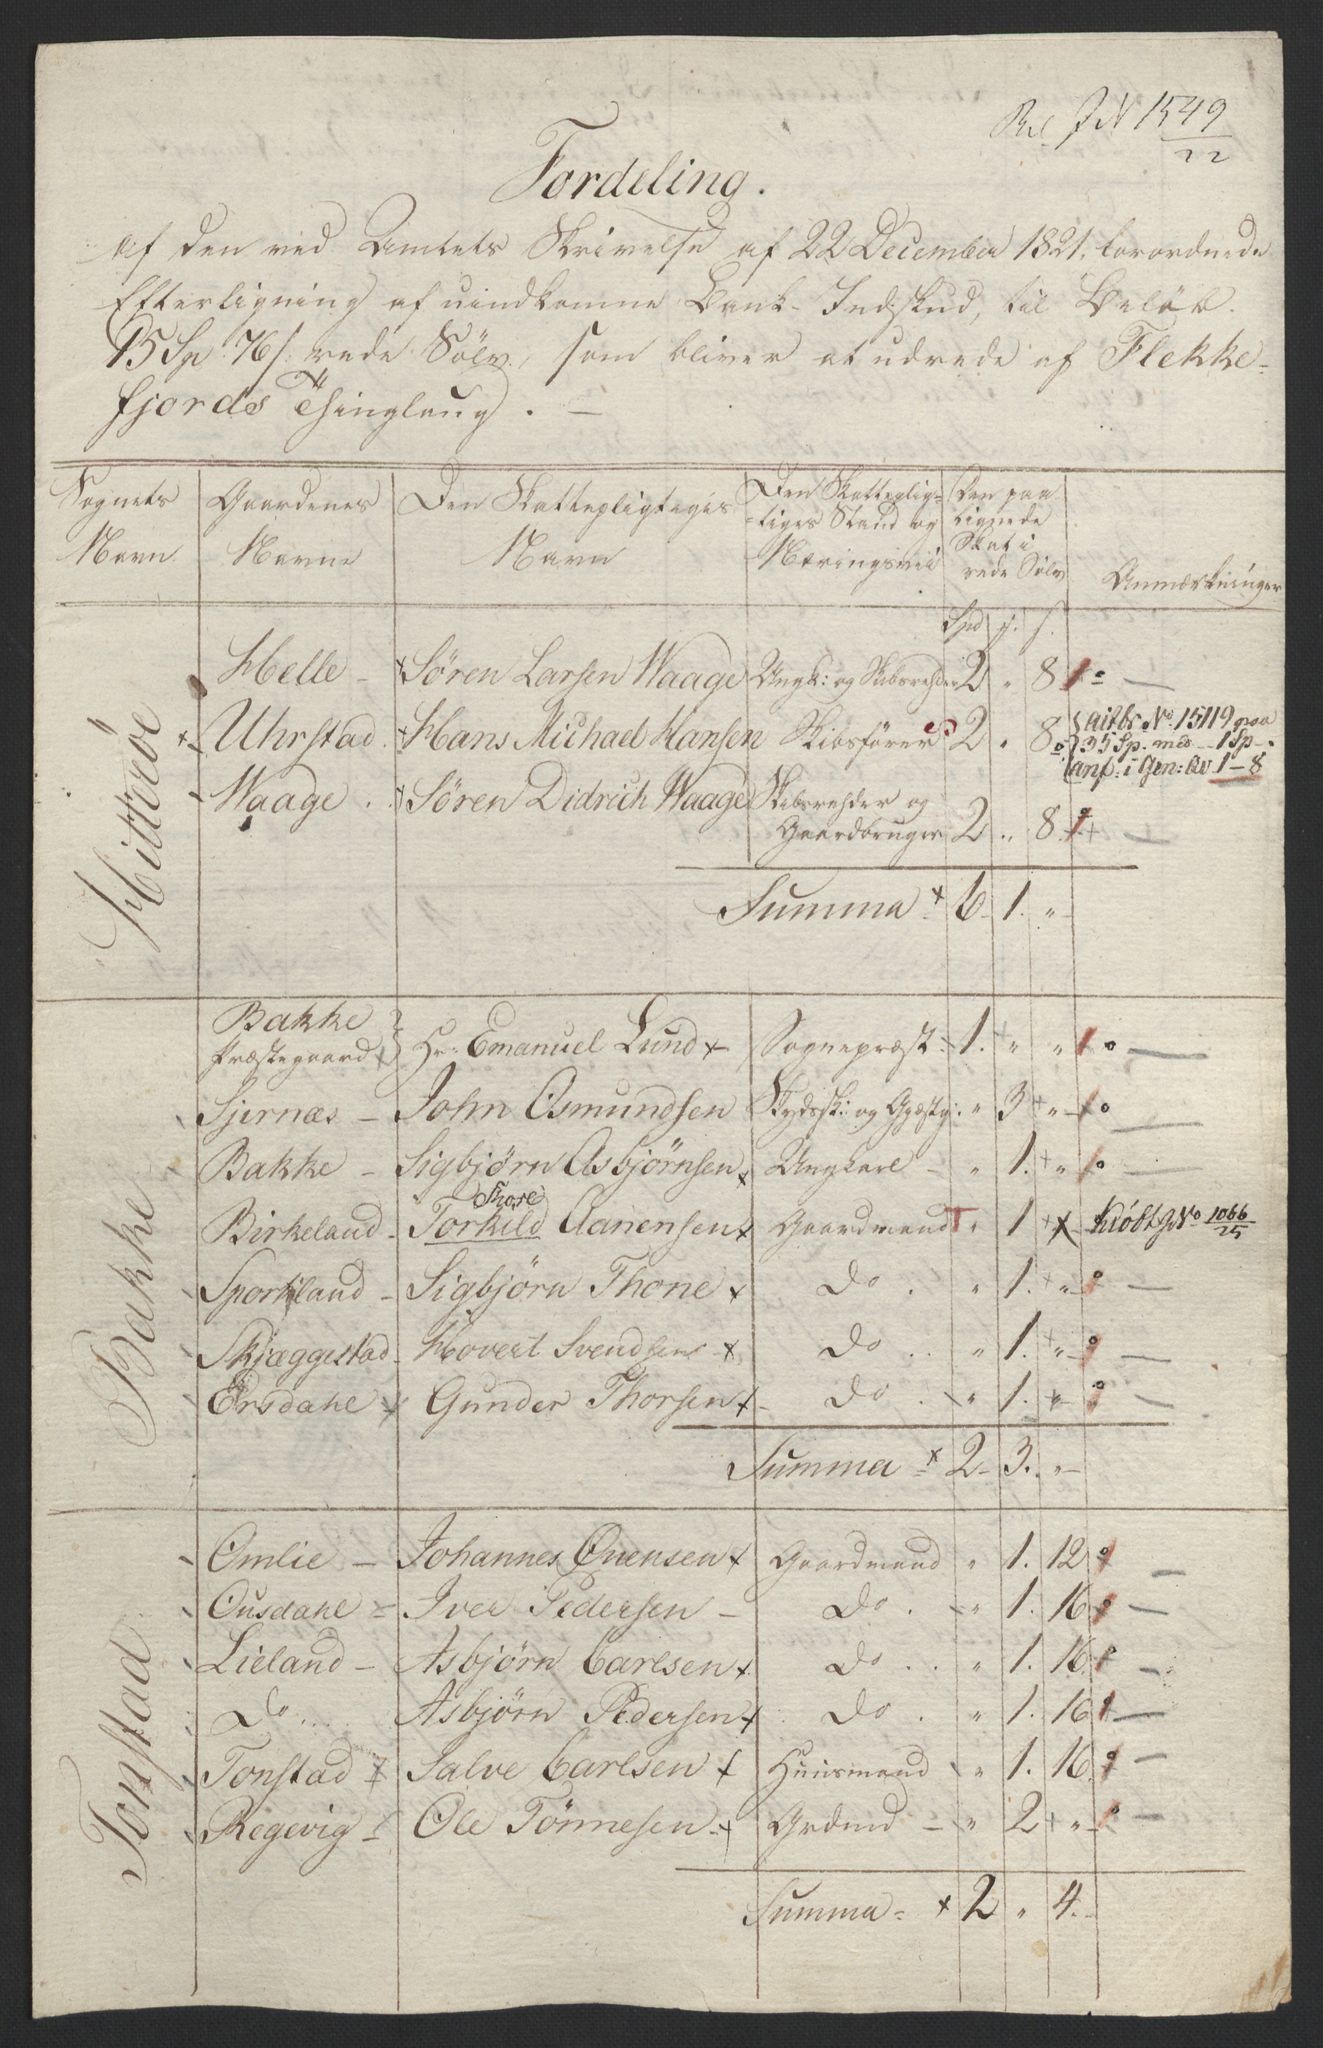 Bil J N 1549/22
Fordeling.
af den ved Amtets Skrivelse af 22 December 1821, forordnede
Efterligning af uindkomne Bank-Indskud, til Beløb.
15 Sp. 76 s. rede Sølv, som bliver at udrede af Flekke-
fjords Thinglaug. —
Sognets Navn | Gaardenes Navne | Den Skattepligtiges Navn | Den Skattepligtiges Stand og Næringsvei | Den paalignede Skat i rede Sølv | Anmærkninger
Spd | s.
Hitterøe
Helle - Søren Larsen Waage Ungk: og Skibsrehder 2 " 8
Uhrstad. Hans Michael Hansen Skibsfører 2 " 8 No. 15119 paa
35 Sp. med 1 Sp
anf: i Gen: Qv 1-8
Waage. Søren Didrich Waage Skibsrehder og
Gaardbruger 2 " 8
Summa 6 1. "
Bakke
Bakke
Præstegaard Hr: Emanuel Lund Sognepræst 1. " "
Sjernæs - John Osmundsen Skydssk: og Gjæstg: " 3 "
Bakke - Sigbjørn Asbjørnsen Ungkarl - " 1. "
Thore
Birkeland Torkild Aanensen Gaardmand " 1 Kiøbt J No 1066/25
Sporkland - Sigbjørn Thone Do. " 1. "
Skjæggestad - Hovert Svendsen Do.. " 1. "
Ersdahl Gunder Thorsen Do. " 1. "
Summa 2 3. "
Tonstad
Omlie - Johannes Ovensen Gaardmand " 1. 12
Ousdahl - Iver Pedersen - Do. " 1. 16
Lieland - Asbjørn Carlsen Do.. " 1. 16
Do.... Asbjørn Pedersen Do. " 1. 16
Tonstad Salve Carlsen Huusmand " 1. 16
Regevig - Ole Tønnesen Grdmd - " 2 "
Summa 2 " 4.